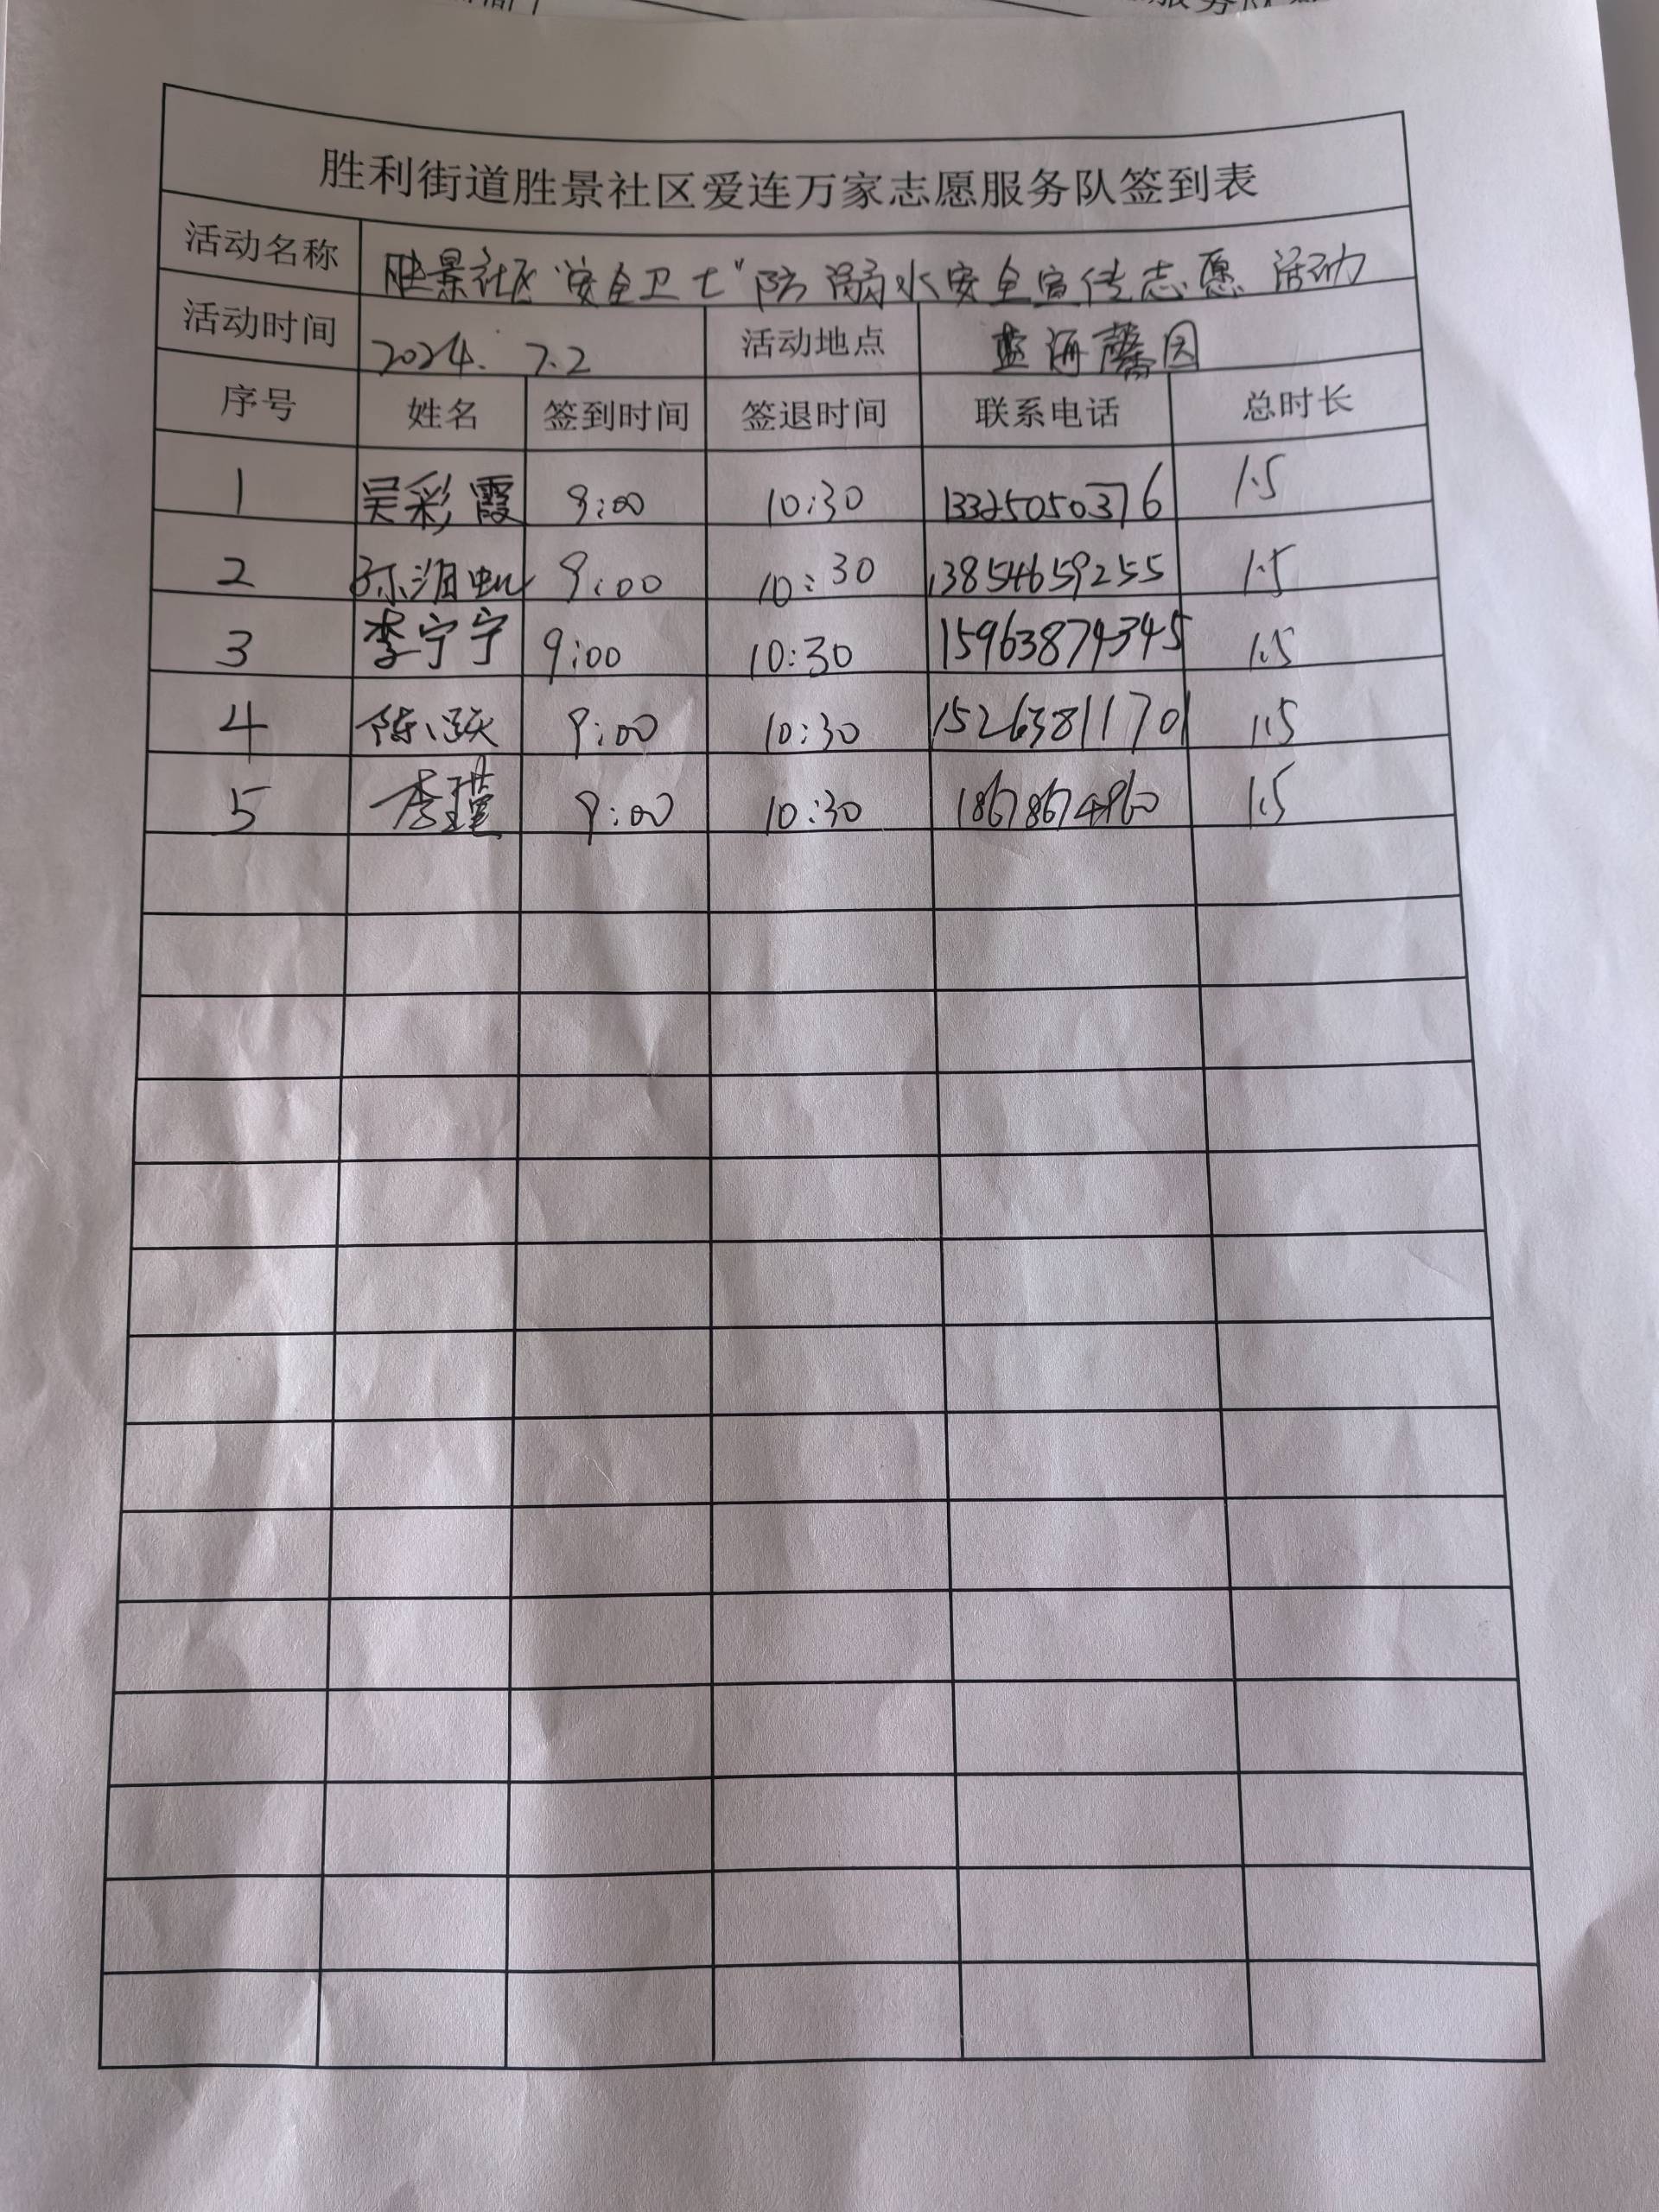 胜利街道胜景社区爱连万家志愿服务队签到表
活动名称 胜景社区"安全卫士"防溺水安全宣传志愿活动
活动时间 2024.7.2 活动地点 蓝海馨园
序号 姓名 签到时间 签退时间 联系电话 总时长
1 吴彩霞 9:00 10:30 13325050376 1.5
2 9:00 10:30 13854659255 1.5
3 李宁宁 9:00 10:30 15963874345 1.5
4 9:00 10:30 15263811701 1.5
5 李瑾 9:00 10:30 18678674960 1.5